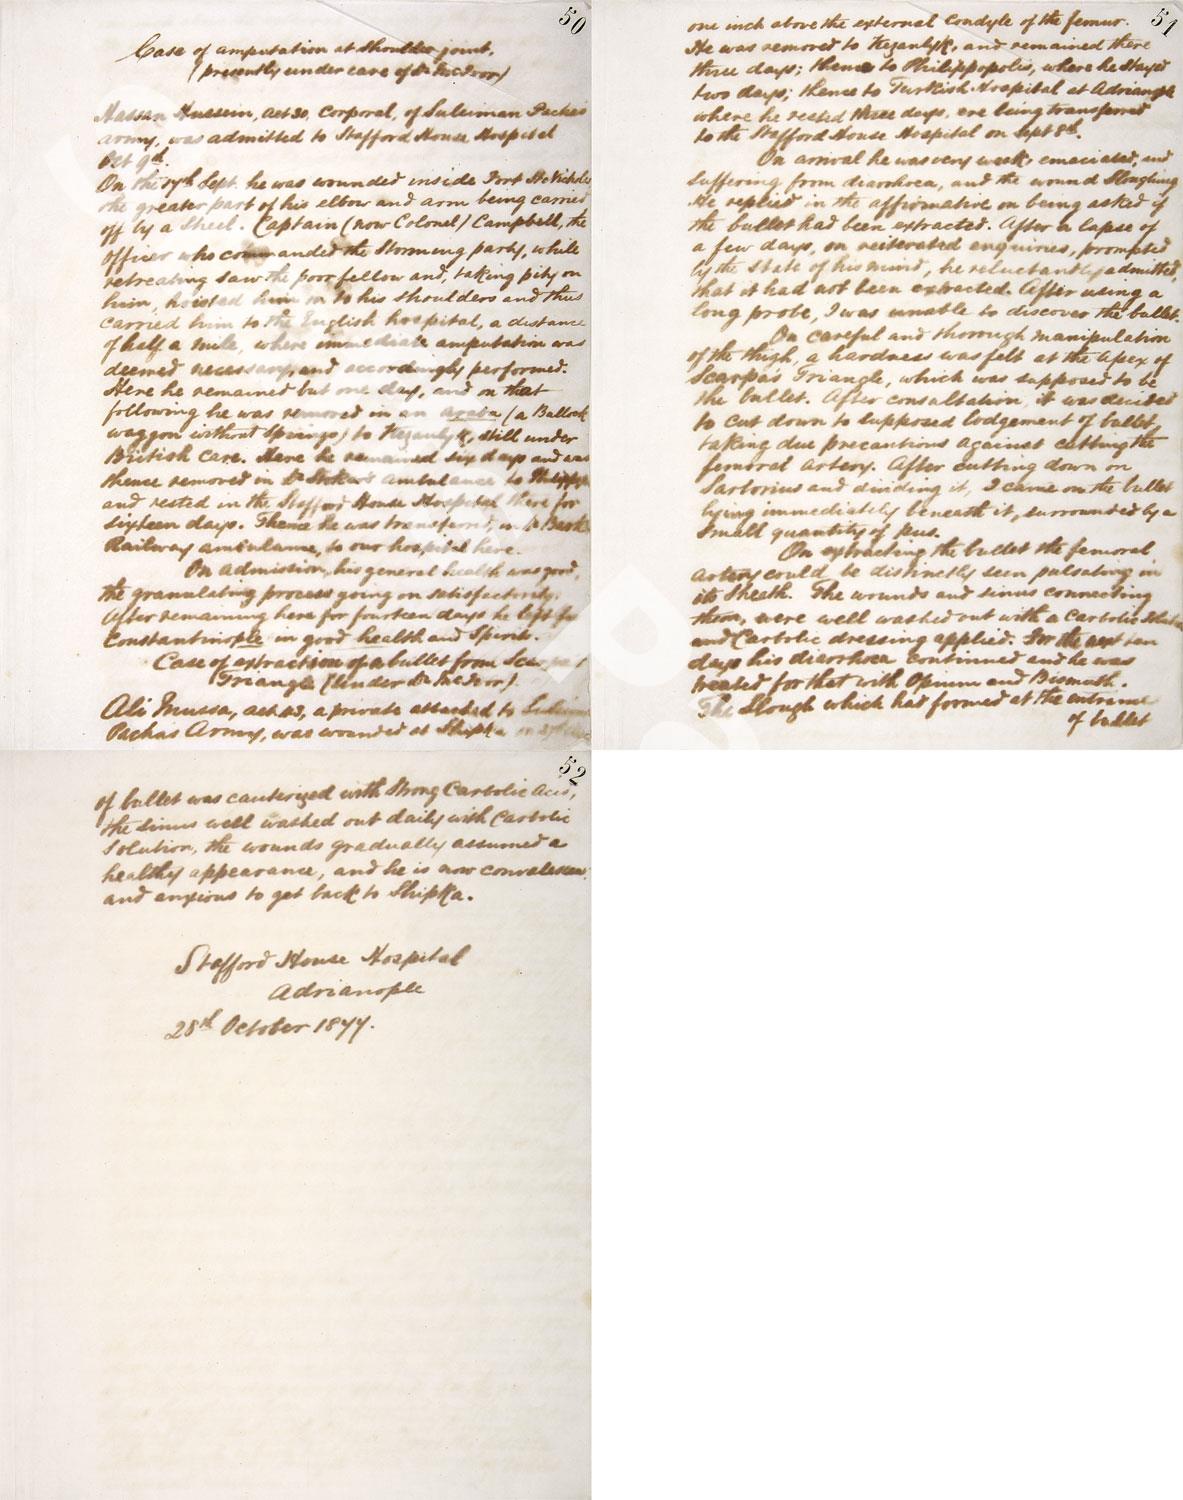 50
Case of amputation at shoulder joint,
(presently under care of Dr McIvor)
Hassan Hussein, aet 30, Corporal, of Suleiman Pacha's
army, was admitted to Stafford House Hospital
Oct 9th.
On the 17th Sept. he was wounded inside Fort St Nicholas
the greater part of his elbow and arm being carried
off by a Shell. Captain (now Colonel) Campbell, the
officer who commanded the Storming party, while
retreating saw the poor fellow and, taking pity on
him, hoisted him on to his shoulders and thus
carried him to the English hospital, a distance
of half a mile, where immediate amputation was
deemed necessary, and accordingly performed.
Here he remained but one day, and on that
following he was removed in an araba (a Bullock
waggon without Springs) to Kezanlyk, still under
British care. Here he remained six days and was
thence removed in Dr Stoker's ambulance to
and rested in the Stafford House Hospital there for
sixteen days. Thence he was transferred, in Dr
Railway ambulance, to our hospital here.
On admission, his general health was good,
the granulating process going on satisfactorily.
After remaining here for fourteen days he left for
Constantinople in good health and Spirits.
Case of extraction of a bullet from Scarpa's
Triangle (Under Dr McIvor).
Ali Mussa, aet 43, a private attached to Suleiman
Pachas Army, was wounded at Shipka on
51
one inch above the external Condyle of the femur.
He was removed to Kezanlyk, and remained there
three days; thence to Philippopolis, where he stayed
two days; thence to Turkish Hospital at Adrianople
where he rested three days, ere being transferred
to the Stafford House Hospital on Sept 8th.
On arrival he was very weak, emaciated, and
suffering from diarrhoea, and the wound Sloughing
He replied in the affirmative on being asked if
the bullet had been extracted. After a lapse of
a few days, on reiterated enquiries, prompted
by the state of his mind, he reluctantly admitted,
that it had not been extracted. After using a
long probe, I was unable to discover the bullet.
On careful and thorough manipulation
of the thigh, a hardness was felt at the Apex of
Scarpa's Triangle, which was supposed to be
the bullet. After consultation, it was decided
to cut down to supposed lodgement of bullet,
taking due precautions against cutting the
femoral artery. After cutting down on
Sartorius and dividing it, I came on the bullet
lying immediately beneath it, surrounded by a
small quantity of pus.
On extracting the bullet the femoral
artery could be distinctly seen pulsating in
its Sheath. The wounds and sinus connecting
them, were well washed out with a Carbolic Solution
and Carbolic dressing applied. For the next ten
days his diarrhoea continued and he was
treated for that with Opium and Bismuth.
The Slough which had formed at the entrance
of bullet
52
of bullet was cauterized with Strong Carbolic Acid,
the sinus well washed out daily with Carbolic
Solution, the wounds gradually assumed a
healthy appearance, and he is now convalescent
and anxious to get back to Shipka.
Stafford House Hospital
Adrianople
28th October 1877.